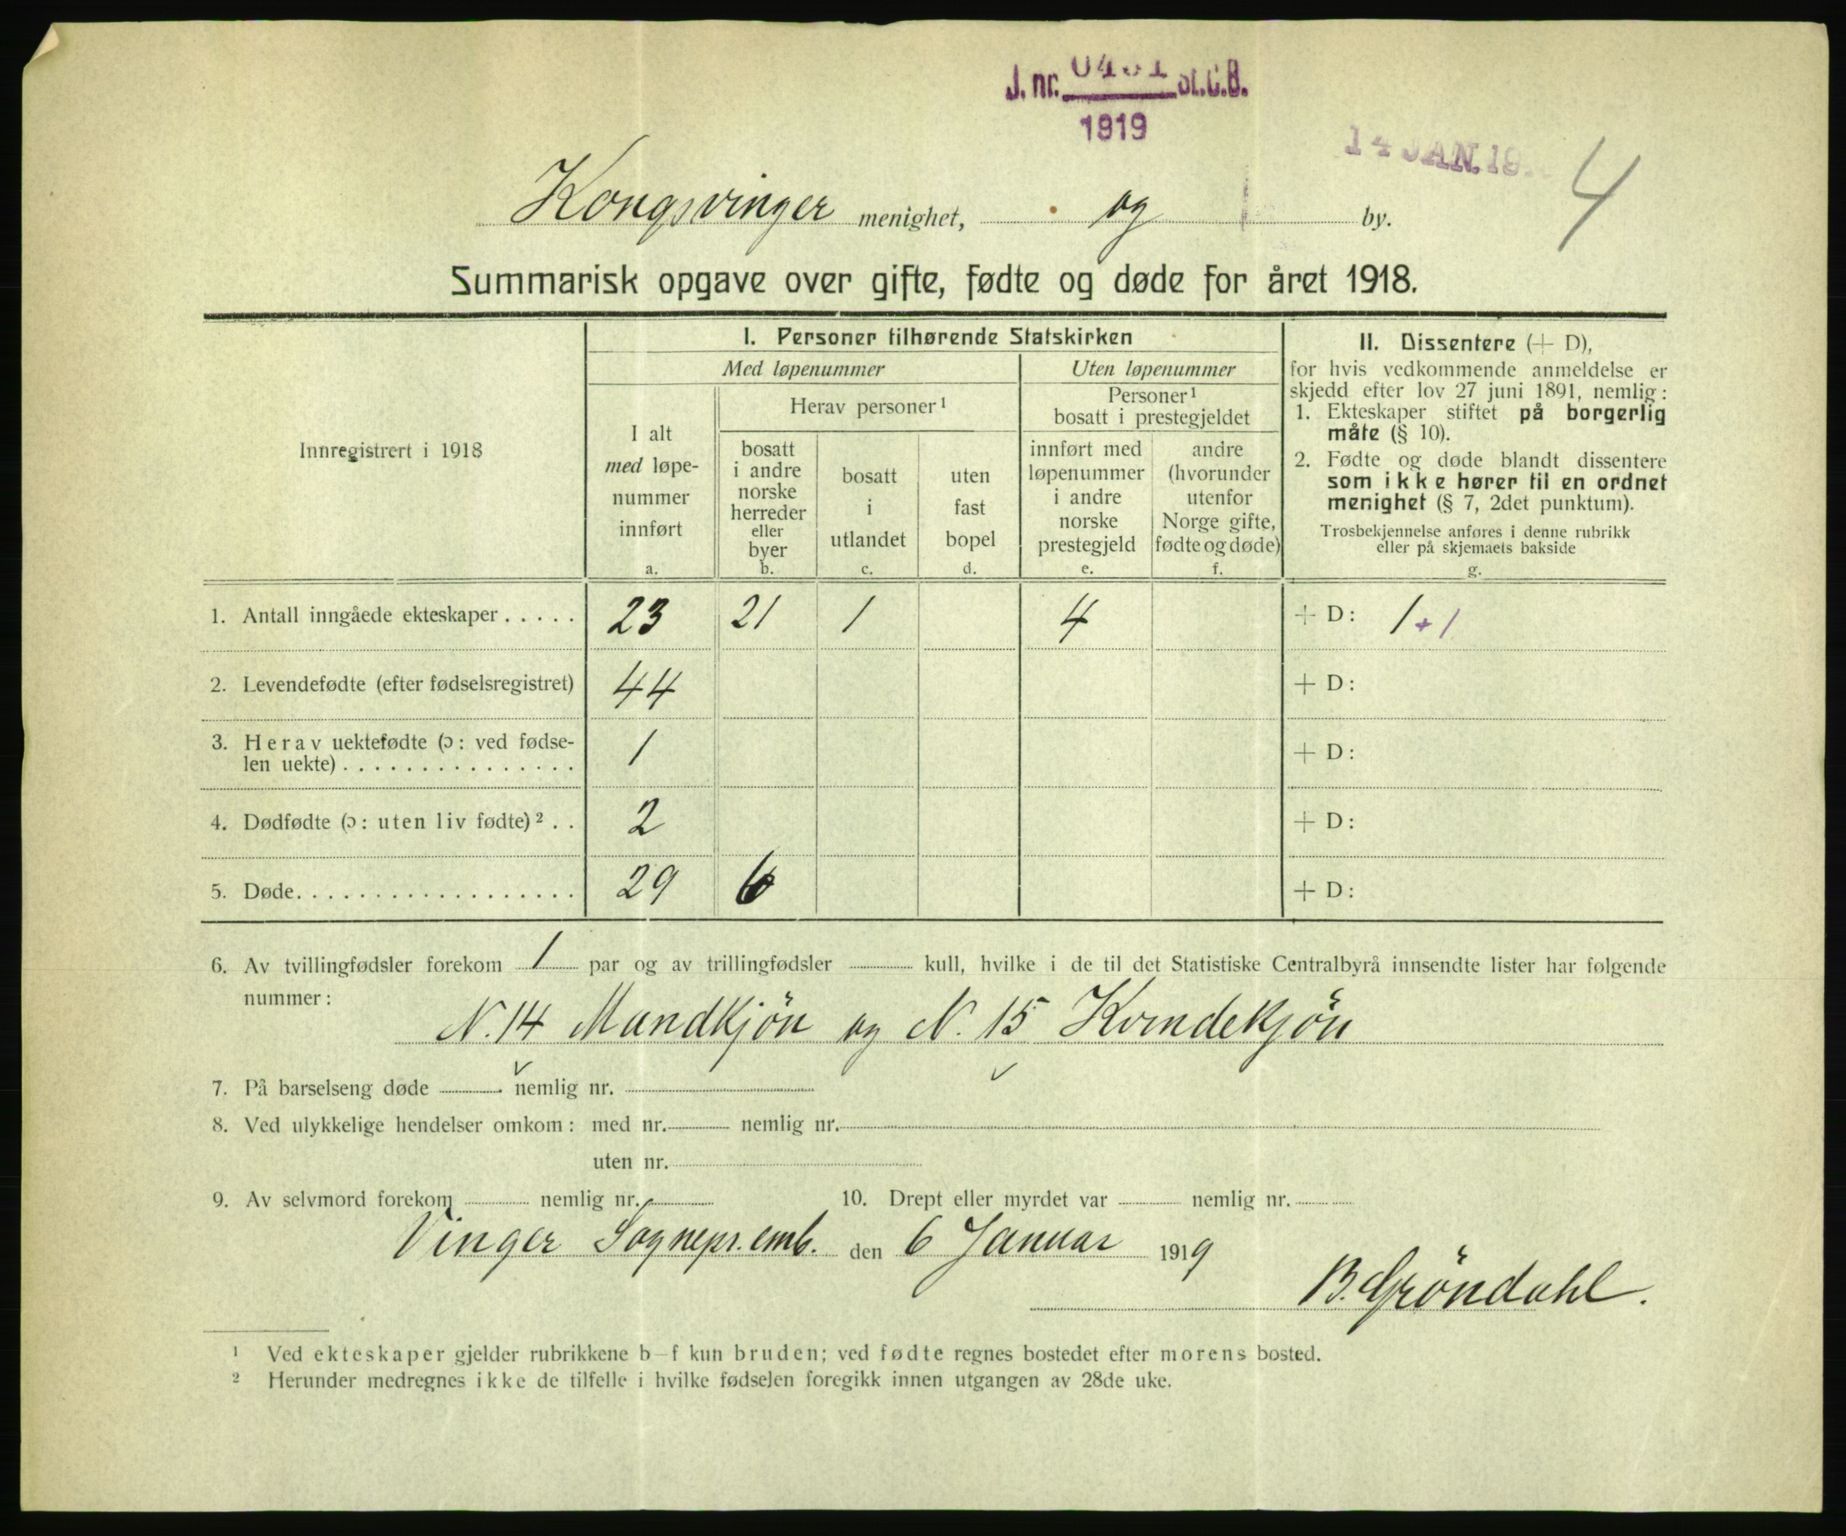 J. nr. St.C.B.
1919
14 JAN. 19
4
Kongsvinger menighet, og by.
Summarisk opgave over gifte, fødte og døde for året 1918.
Innregistrert i 1918
I. Personer tilhørende Statskirken
Med løpenummer
Uten løpenummer
I alt
med løpe-
nummer
innført
a.
Herav personer¹
bosatt
i andre
norske
herreder
eller
byer
b.
bosatt
i
utlandet
c.
uten
fast
bopel
d.
Personer¹
bosatt i prestegjeldet
innført med
løpenummer
i andre
norske
prestegjeld
e.
andre
(hvorunder
utenfor
Norge gifte,
fødte og døde)
f.
II. Dissentere (+ D),
for hvis vedkommende anmeldelse er
skjedd efter lov 27 juni 1891, nemlig:
1. Ekteskaper stiftet på borgerlig
måte (§ 10).
2. Fødte og døde blandt dissentere
som ikke hører til en ordnet
menighet (§ 7, 2det punktum).
Trosbekjennelse anføres i denne rubrikk
eller på skjemaets bakside
g.
1. Antall inngåede ekteskaper . . . . . 23 21 1 4 + D: 1 + 1
2. Levendefødte (efter fødselsregistret) 44 + D:
3. Herav uektefødte (ɔ: ved fødse-
len uekte) . . . . . . . . . . . . . . . 1 + D:
4. Dødfødte (ɔ: uten liv fødte)² . . 2 + D:
5. Døde. . . . . . . . . . . . . . . . . . 29 6 + D:
6. Av tvillingfødsler forekom 1 par og av trillingfødsler kull, hvilke i de til det Statistiske Centralbyrå innsendte lister har følgende
nummer:
N. 14 Mandkjön og N. 15 Kvindekjön
7. På barselseng døde nemlig nr.
8. Ved ulykkelige hendelser omkom: med nr. nemlig nr.
uten nr.
9. Av selvmord forekom nemlig nr. 10. Drept eller myrdet var nemlig nr.
Vinger Sognepr.emb. den 6 Januar 1919
B. Gröndahl.
¹ Ved ekteskaper gjelder rubrikkene b–f kun bruden; ved fødte regnes bostedet efter morens bosted.
² Herunder medregnes ikke de tilfelle i hvilke fødselen foregikk innen utgangen av 28de uke.